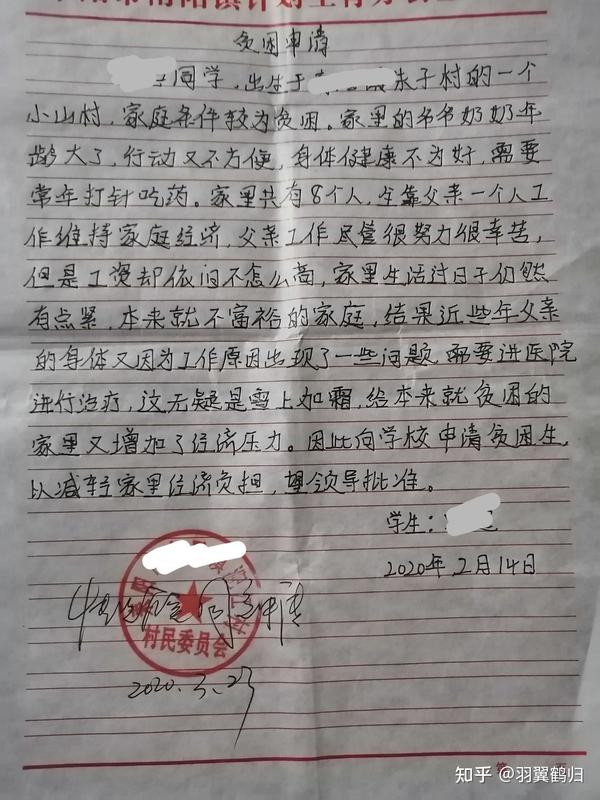 贫困申请
同学，出生于 朱子村的一个
小山村，家庭条件较为贫困。家里的爷爷奶奶年
龄大了，行动又不方便，身体健康不为好，需要
常年打针吃药。家里共有8个人，全靠父亲一个人工
作维持家庭经济，父亲工作尽管很努力很辛苦，
但是工资却依旧不怎么高，家里生活过日子仍然
有点紧，本来就不富裕的家庭，结果近些年父亲
的身体又因为工作原因出现了一些问题，需要进医院
进行治疗，这无疑是雪上加霜，给本来就贫困的
家里又增加了经济压力。因此向学校申请贫困生，
以减轻家里经济负担，望领导批准。
学生：
2020年2月14日
村民委员会
2020.3.27
知乎 @羽翼鹤归